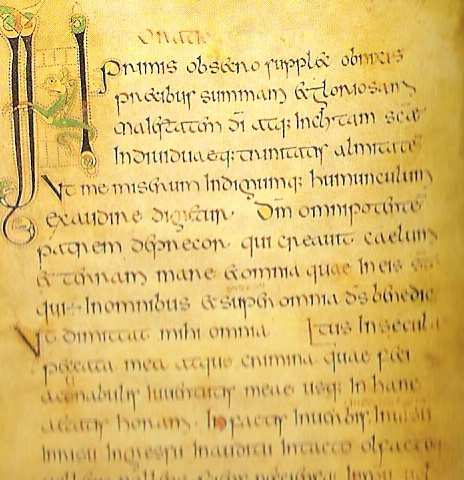 Oratio
In primis obsecro supplex obnixis
precibus summam & gloriosam
maiestatem dī atq: inclitam scae
individuaeq: trinitatis almitate
Ut me miserum indignumq: humunculum
exaudire digneris dm̄ omnipotente
patrem deprecor qui creauit caelum
& terram mare & omnia quae in eis
qui in omnibus & super omnia d̄s benedic
Ut dimittat mihi omnia tus in secula
peccata mea atque crimina quae feci
aconabulis iuuentutis meae usq: in hanc
aetatis horam. In factis in uerbis inuisu
inrisu ingressu inauditu intactu olfactu